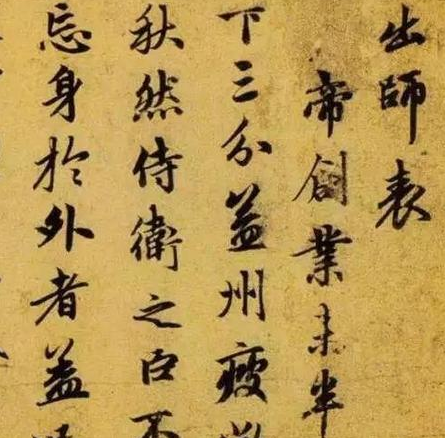 出師表
帝創業未半
下三分益州疲
秋然侍衛之臣不
忘身於外者益